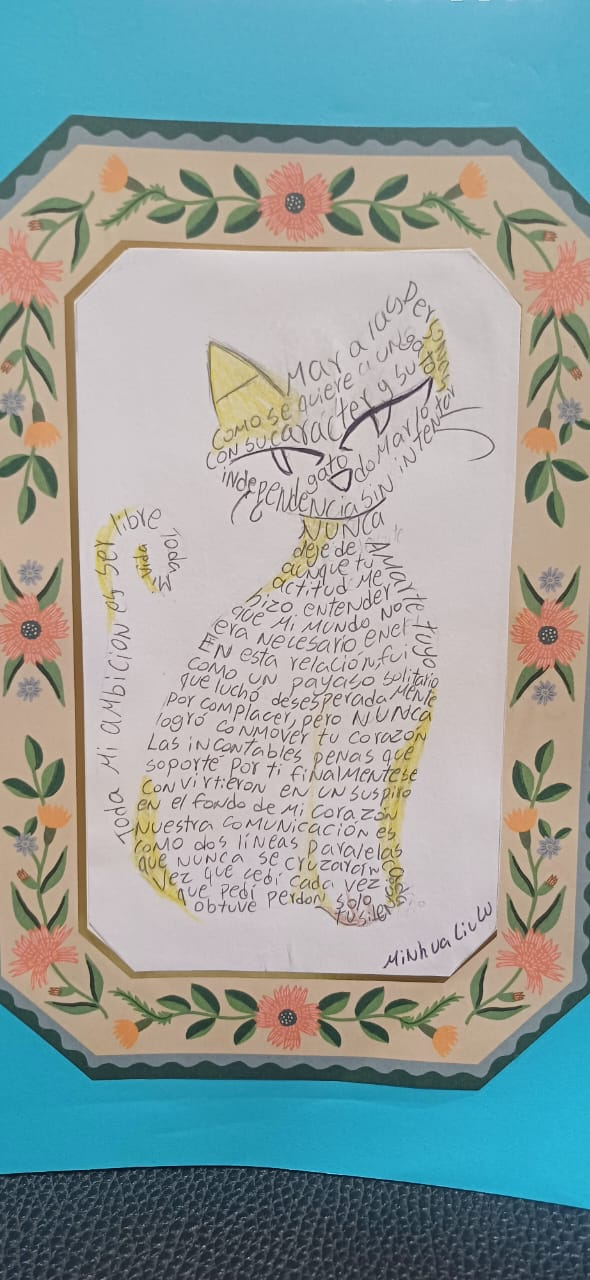 Mar a las personas
como se quiere a un gato
con su caracter y su
independencia sin intentar
gato
do Marlo
NUNCA
deje de AMARTE
aunque tu
actitud Me
hizo entender
que Mi MUNDO NO
era necesario enel tuyo
EN esta relación fui
como un payaso solitario
que luchó desesperadaMente
por complacer, pero NUNCA
logró conmover tu corazón
Las incontables penas que
soporte por ti finalmentese
convirtieron en un suspiro
en el fondo de Mi corazón
Nuestra comunicación es
como dos líneas paralelas
que nunca se cruzarán Cada
Vez que cedí cada vez
que pedi perdon solo
obtuve tu silen
Toda Mi ambición es ser libre Toda M
vida
Minhua Liu W